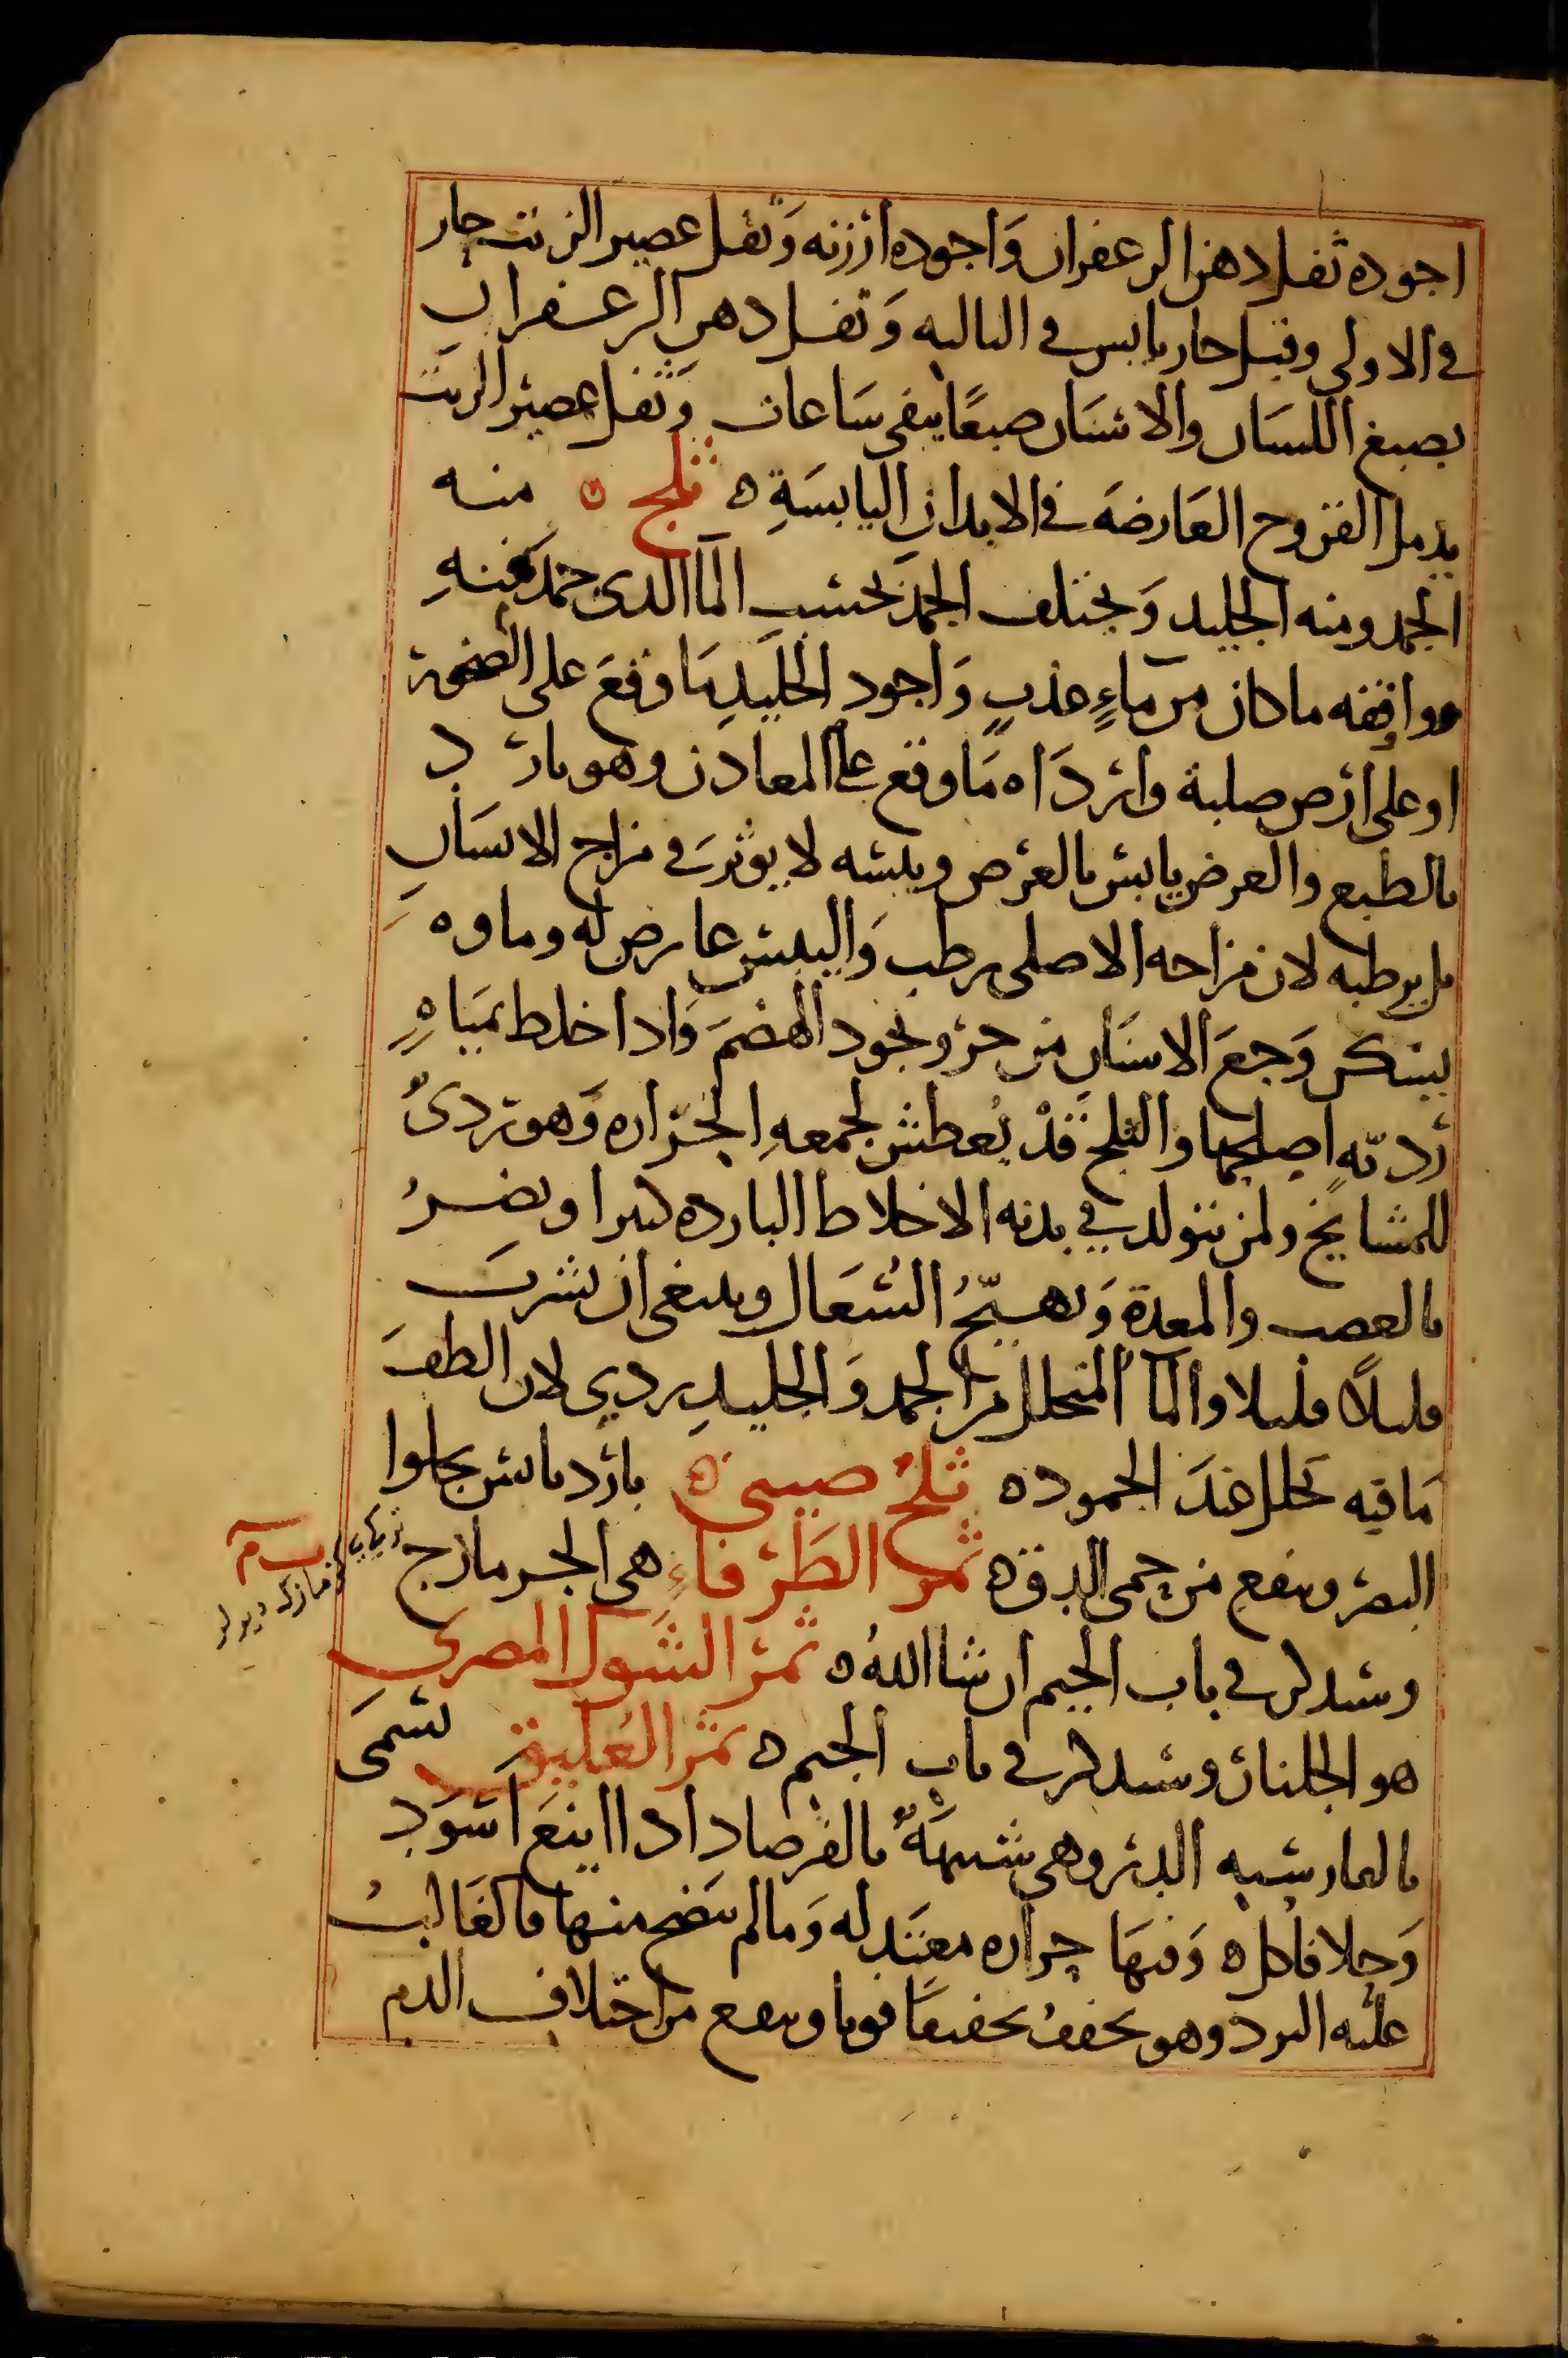 اجوده ثفل دهن الزعفران وَاجوده ارزنه وَثفل عصير الزيت حار
في الاولى وقيل حار يابس في الثانيه وَثفل دهن الزعفران
يصبغ اللسان والاسنان صبغًا يبقى سَاعات وَثفل عصير الزيت
يدمل القروح العَارضَه في الابدان اليابسَةِ ه ثلج ه منه
الجمد ومنه الجليد وَيختلف الجمد بحسب المآ الذى جمد منهِ
وواقفه ماكان من ماءٍ عذبٍ وَاجود الجليدِ مَا وقعَ على الصخور
او على ارض صلبة واردَاه مَاوقع على المعادن وهو بارد
بالطبع والعرض يابس بالعرض ويبسه لا يوثر في مزاج الانسان
بل يرطبه لان مزاجه الاصلى رطب وَاليبس عارض له وماوه
يسكن وَجعَ الاسنَان من حر ويجود الهضمَ وَاذا خلط بميَاهٍ
ردِيّهٍ اصلحها والثلج قدْ يُعطش لجمعهِ الحَراره وَهو ردىُ
للمشايخ ولمن يتولد في بدنه الاخلاط البارده كثيرا ويضرُ
بالعصب والمعدة وَيهيّجُ السُعَال وينبغى ان يشربَ
قليلاً قليلا والمآ المنحلل من الجمد وَالجليدِ ردي لان الطفَ
مَافيه تحلل عندَ الجمود ه ثلجٌ صيني ه بارد يابس يجلوا
البصر وينفع من حمى الدق ه ثمر الطَرفاءِ هى الجزمازج
وسيذكر في باب الجيم ان شا اللهُ ه ثمر الشَوك المصرى
هو الجلنار وسيذكر في باب الجيم ه ثمر العُليق تسَمى
بالعار شبه الدبر وهى شبيهَةٌ بالفرصاد اذا اينعَ اسوَد
وَحلا فاكل ه وَفيهَا حراره معتَدله وَمالم ينضج منها فالغَالبُ
عليه البرد وهو يجففُ تجفيفًا قويا وينفع من اختلاف الدم